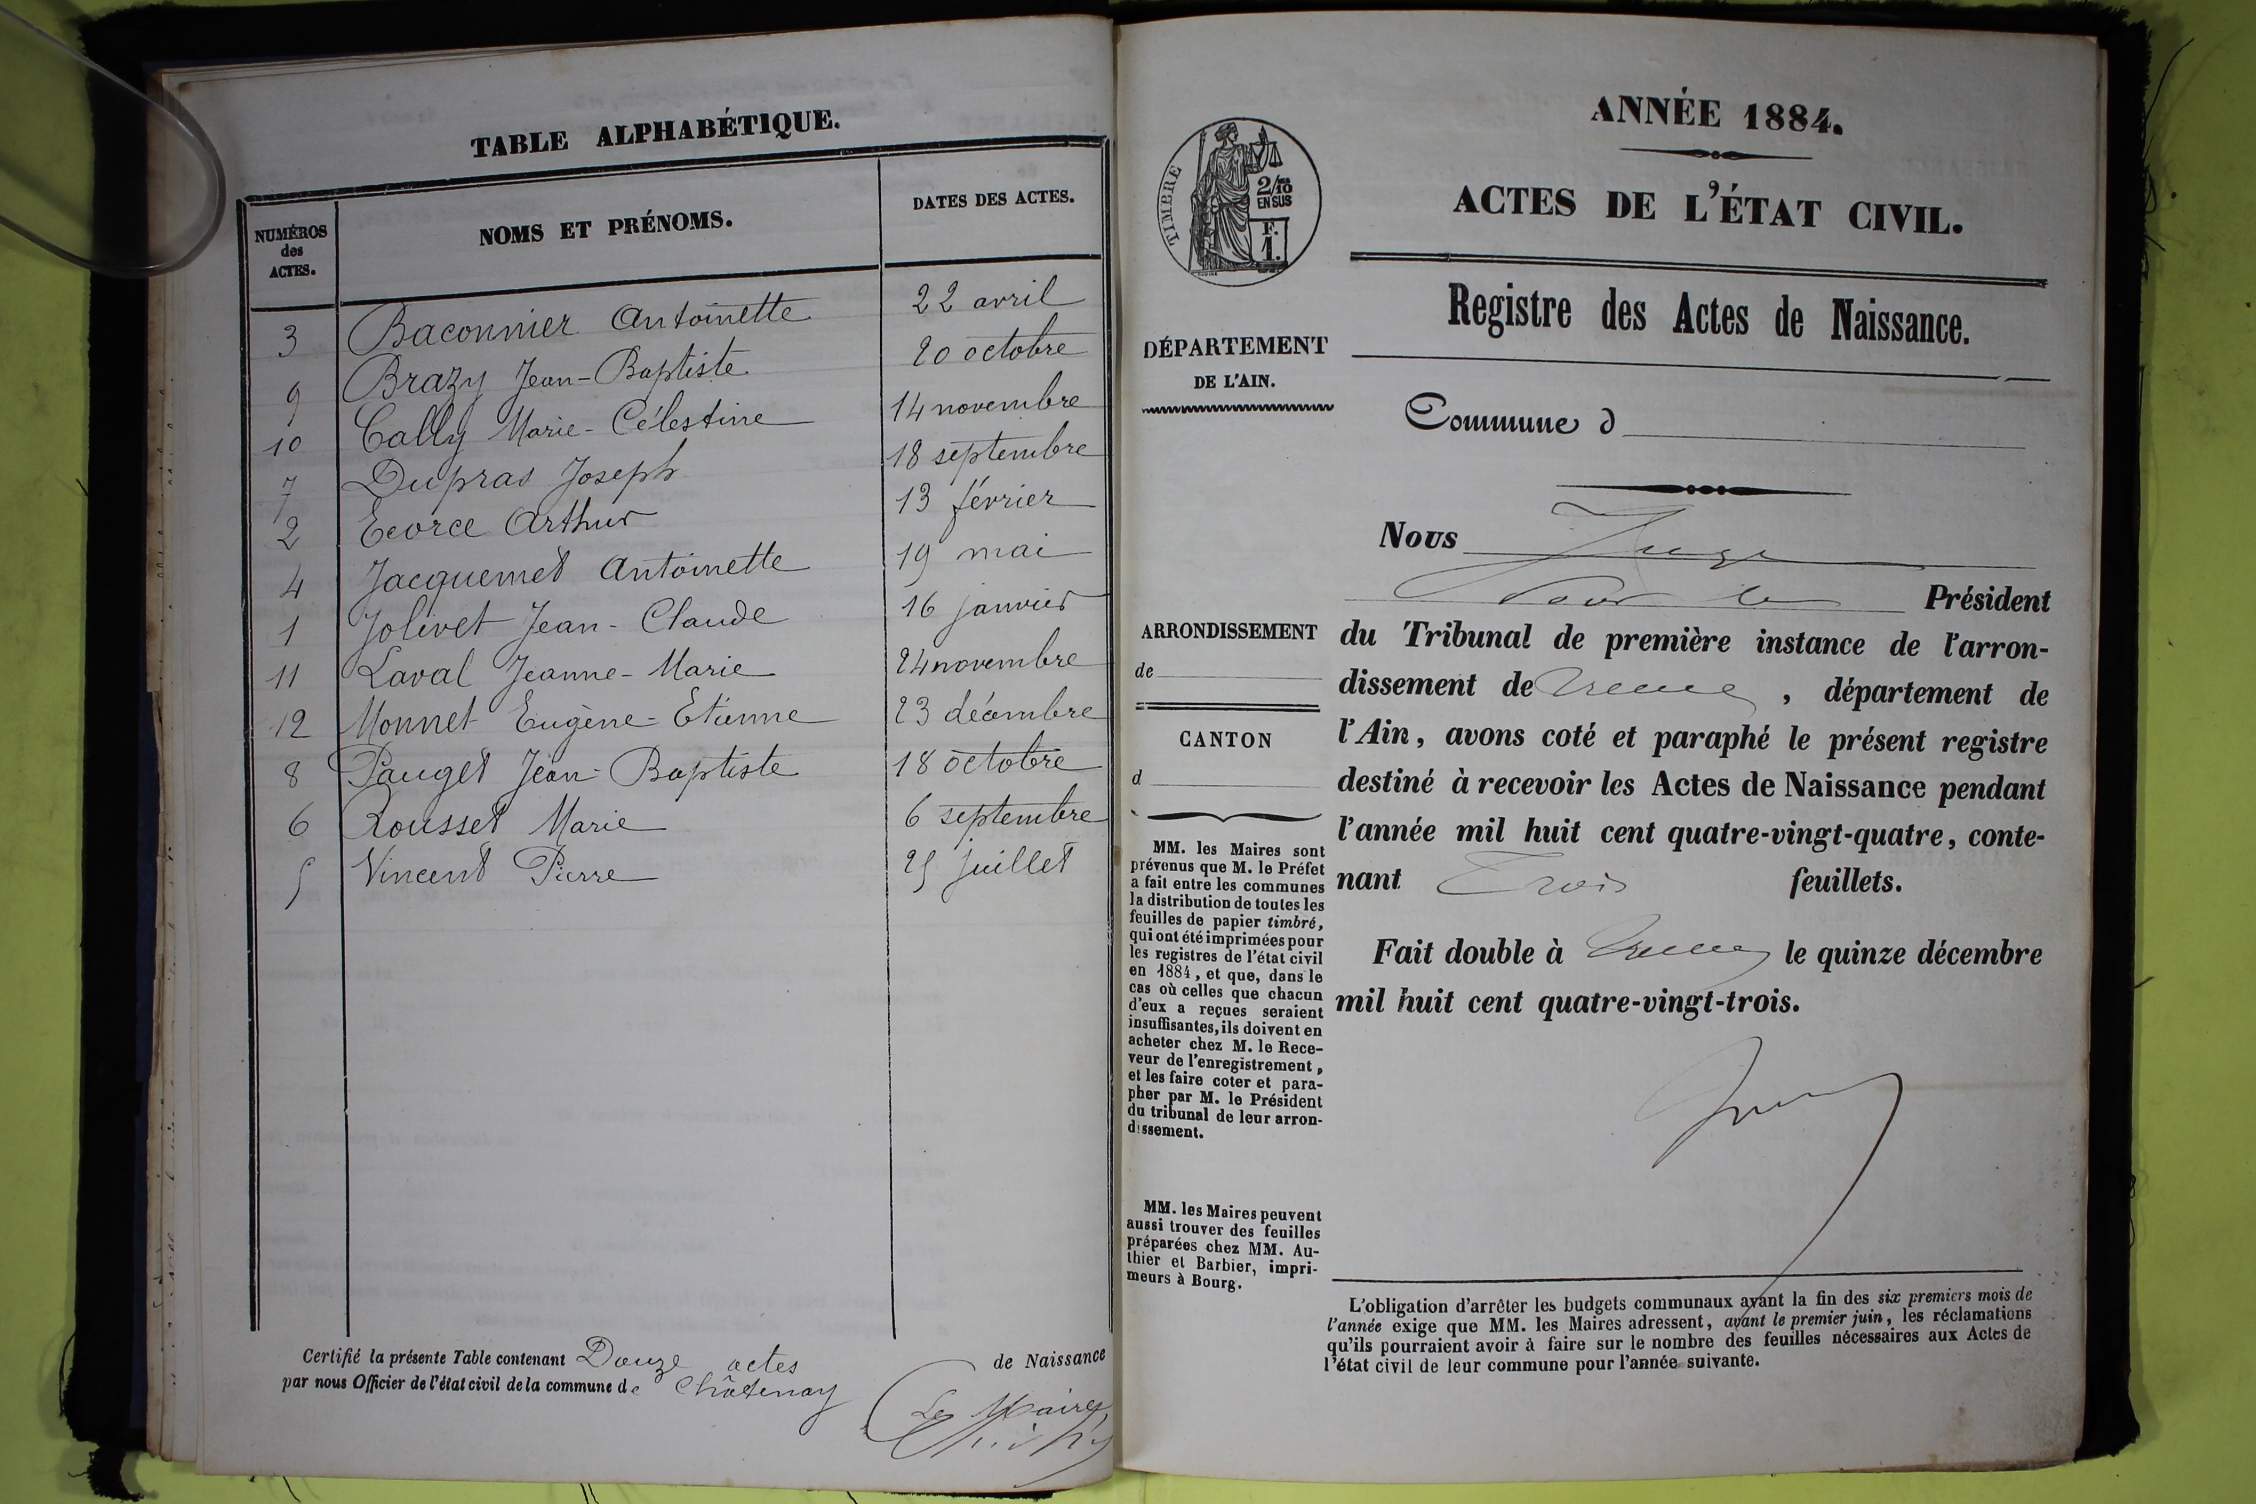 TABLE ALPHABÉTIQUE.
NUMÉROS des ACTES. NOMS ET PRÉNOMS. DATES DES ACTES.
3 Baconnier Antoinette 22 avril
9 Brazy Jean-Baptiste 20 octobre
10 Cally Marie-Célestine 14 novembre
7 Dupras Joseph 18 septembre
2 Ecorce Arthur 13 février
4 Jacquemet Antoinette 19 mai
1 Jolivet Jean-Claude 16 janvier
11 Laval Jeanne-Marie 24 novembre
12 Monnet Eugène-Etienne 23 décembre
8 Pauget Jean-Baptiste 18 octobre
6 Rousset Marie 6 septembre
5 Vincent Pierre 25 juillet
Certifié la présente Table contenant Douze actes de Naissance
par nous Officier de l'état civil de la commune de Châtenay
Le Maire
ANNÉE 1884.
ACTES DE L'ÉTAT CIVIL.
TIMBRE
2/10
EN SUS
F.
1.
Registre des Actes de Naissance.
DÉPARTEMENT
DE L'AIN.
Commune d
Nous Juge
Pour le Président
ARRONDISSEMENT
de
CANTON
d
du Tribunal de première instance de l'arron-
dissement de , département de
l'Ain, avons coté et paraphé le présent registre
destiné à recevoir les Actes de Naissance pendant
l'année mil huit cent quatre-vingt-quatre, conte-
nant Trois feuillets.
Fait double à le quinze décembre
mil huit cent quatre-vingt-trois.
MM. les Maires sont
prévenus que M. le Préfet
a fait entre les communes
la distribution de toutes les
feuilles de papier timbré,
qui ont été imprimées pour
les registres de l'état civil
en 1884, et que, dans le
cas où celles que chacun
d'eux a reçues seraient
insuffisantes, ils doivent en
acheter chez M. le Rece-
veur de l'enregistrement,
et les faire coter et para-
pher par M. le Président
du tribunal de leur arron-
dissement.
MM. les Maires peuvent
aussi trouver des feuilles
préparées chez MM. Au-
thier et Barbier, impri-
meurs à Bourg.
L'obligation d'arrêter les budgets communaux avant la fin des six premiers mois de
l'année exige que MM. les Maires adressent, avant le premier juin, les réclamations
qu'ils pourraient avoir à faire sur le nombre des feuilles nécessaires aux Actes de
l'état civil de leur commune pour l'année suivante.